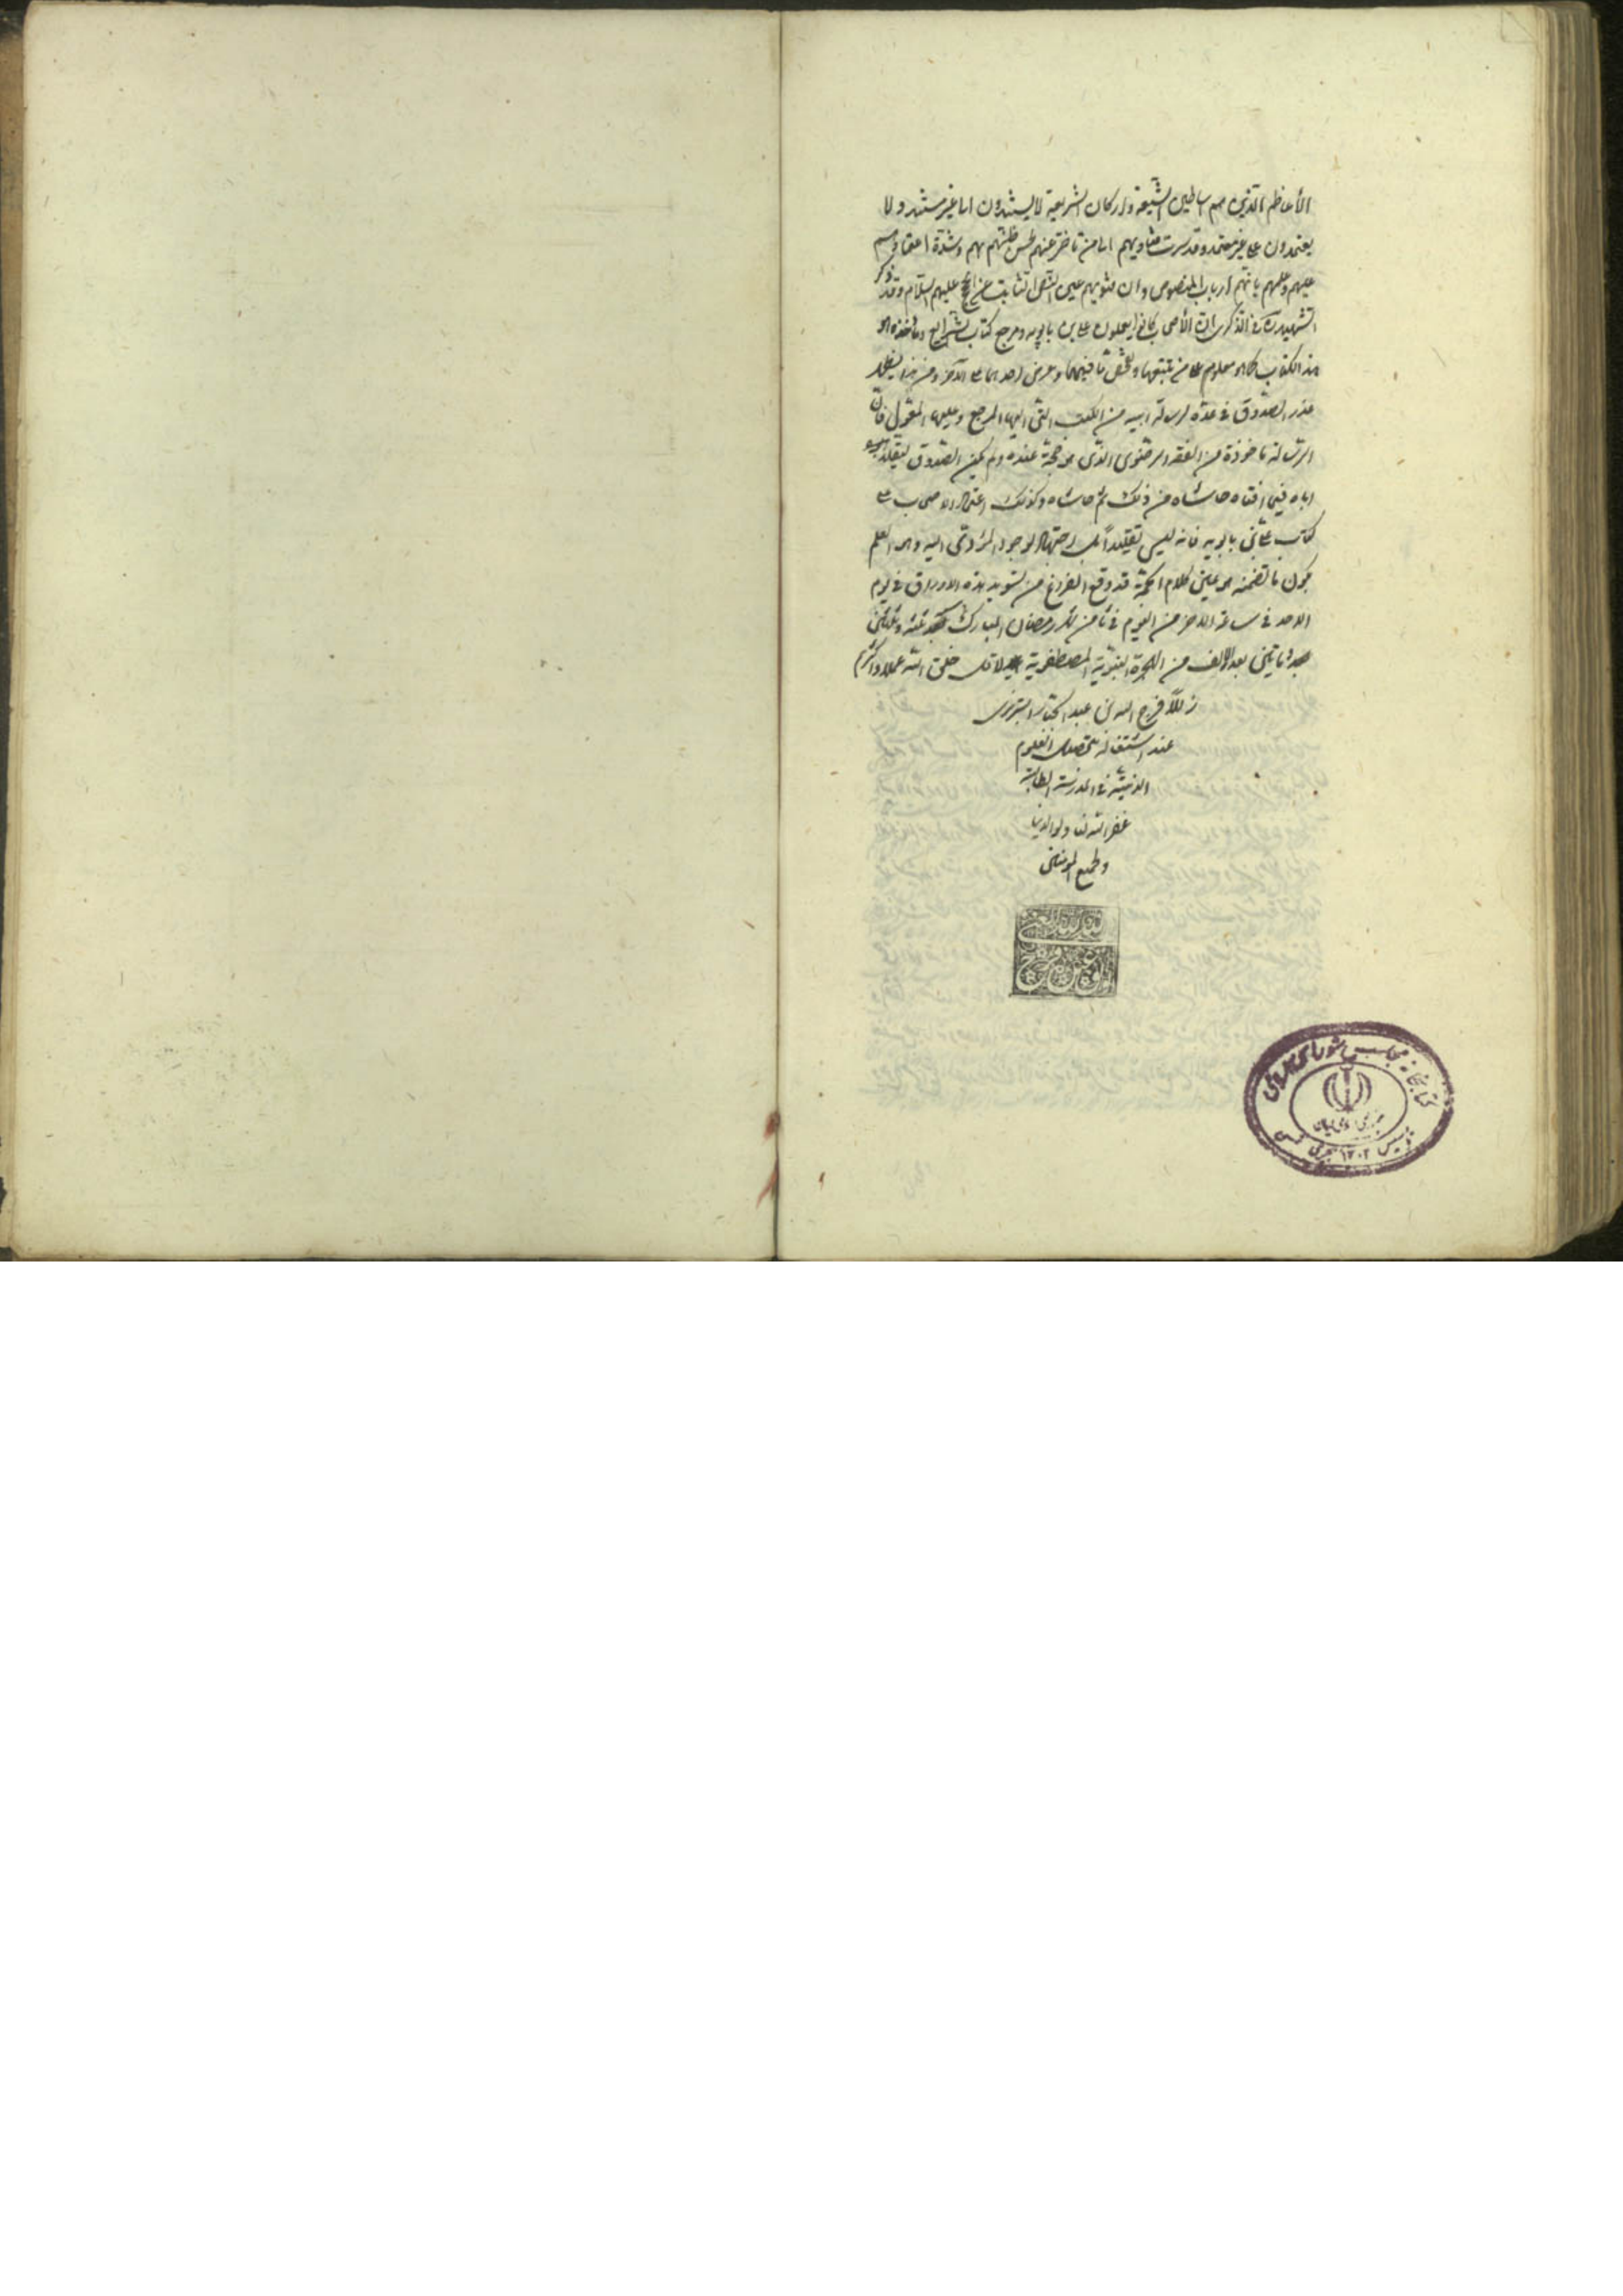 الأعاظم الذين هم اساطين الشيعة واركان الشريعة لا يستندون الى غير مستند ولا
يعتمدون على غير معتمد وقد سرت فتاويهم الى من تأخر عنهم لحسن ظنهم بهم وشدة اعتمادهم
عليهم وعلمهم بانهم ارباب النصوص وان فتويهم عين النص الثابت عن الحجج عليهم السلام وقد ذكر
الشهيد ره في الذكرى ان الأصحاب كانوا يعملون على بن بابويه ومرجع كتاب الشرايع ومأخذه هو
هذا الكتاب كما هو معلوم على من تتبعهما وتفحص ما فيهما وعرض احدهما على الآخر ومن هذا يظهر
عذر الصدوق في عده لرسالة ابيه من الكتب التي اليها المرجع وعليها المعول فان
الرسالة مأخوذة من الفقه الرضوي الذي هو حجة عنده ولم يكن الصدوق ليقلد
اباه فيما افتاه حاشاه من ذلك ثم حاشاه وكذلك اعتماد الاصحاب على
كتاب علي بن بابويه فانه ليس تقليداً بل اجتهاد لوجود المؤدى اليه وهو العلم
بكون ما تضمنه هو عين كلام الحجة قد وقع الفراغ من تسويد هذه الاوراق في يوم
الاحد في ساعة الاخر من اليوم في ثامن شهر رمضان المبارك سنة ثلثة وثلثين
وماتين بعد الالف من الهجرة النبوية المصطفوية خلق الله عملا واكثرهم
زللاً فرج الله بن عبد الجبار التبريزى
عند اشتغاله بتحصيل العلوم
الدينية في المدرسة الطالبية
غفر الله له ولوالديه
ولجميع المؤمنين
كتابخانه مجلس شورای اسلامی
جمهوری اسلامی ایران
تأسیس ۱۳۰۲ هجری شمسی